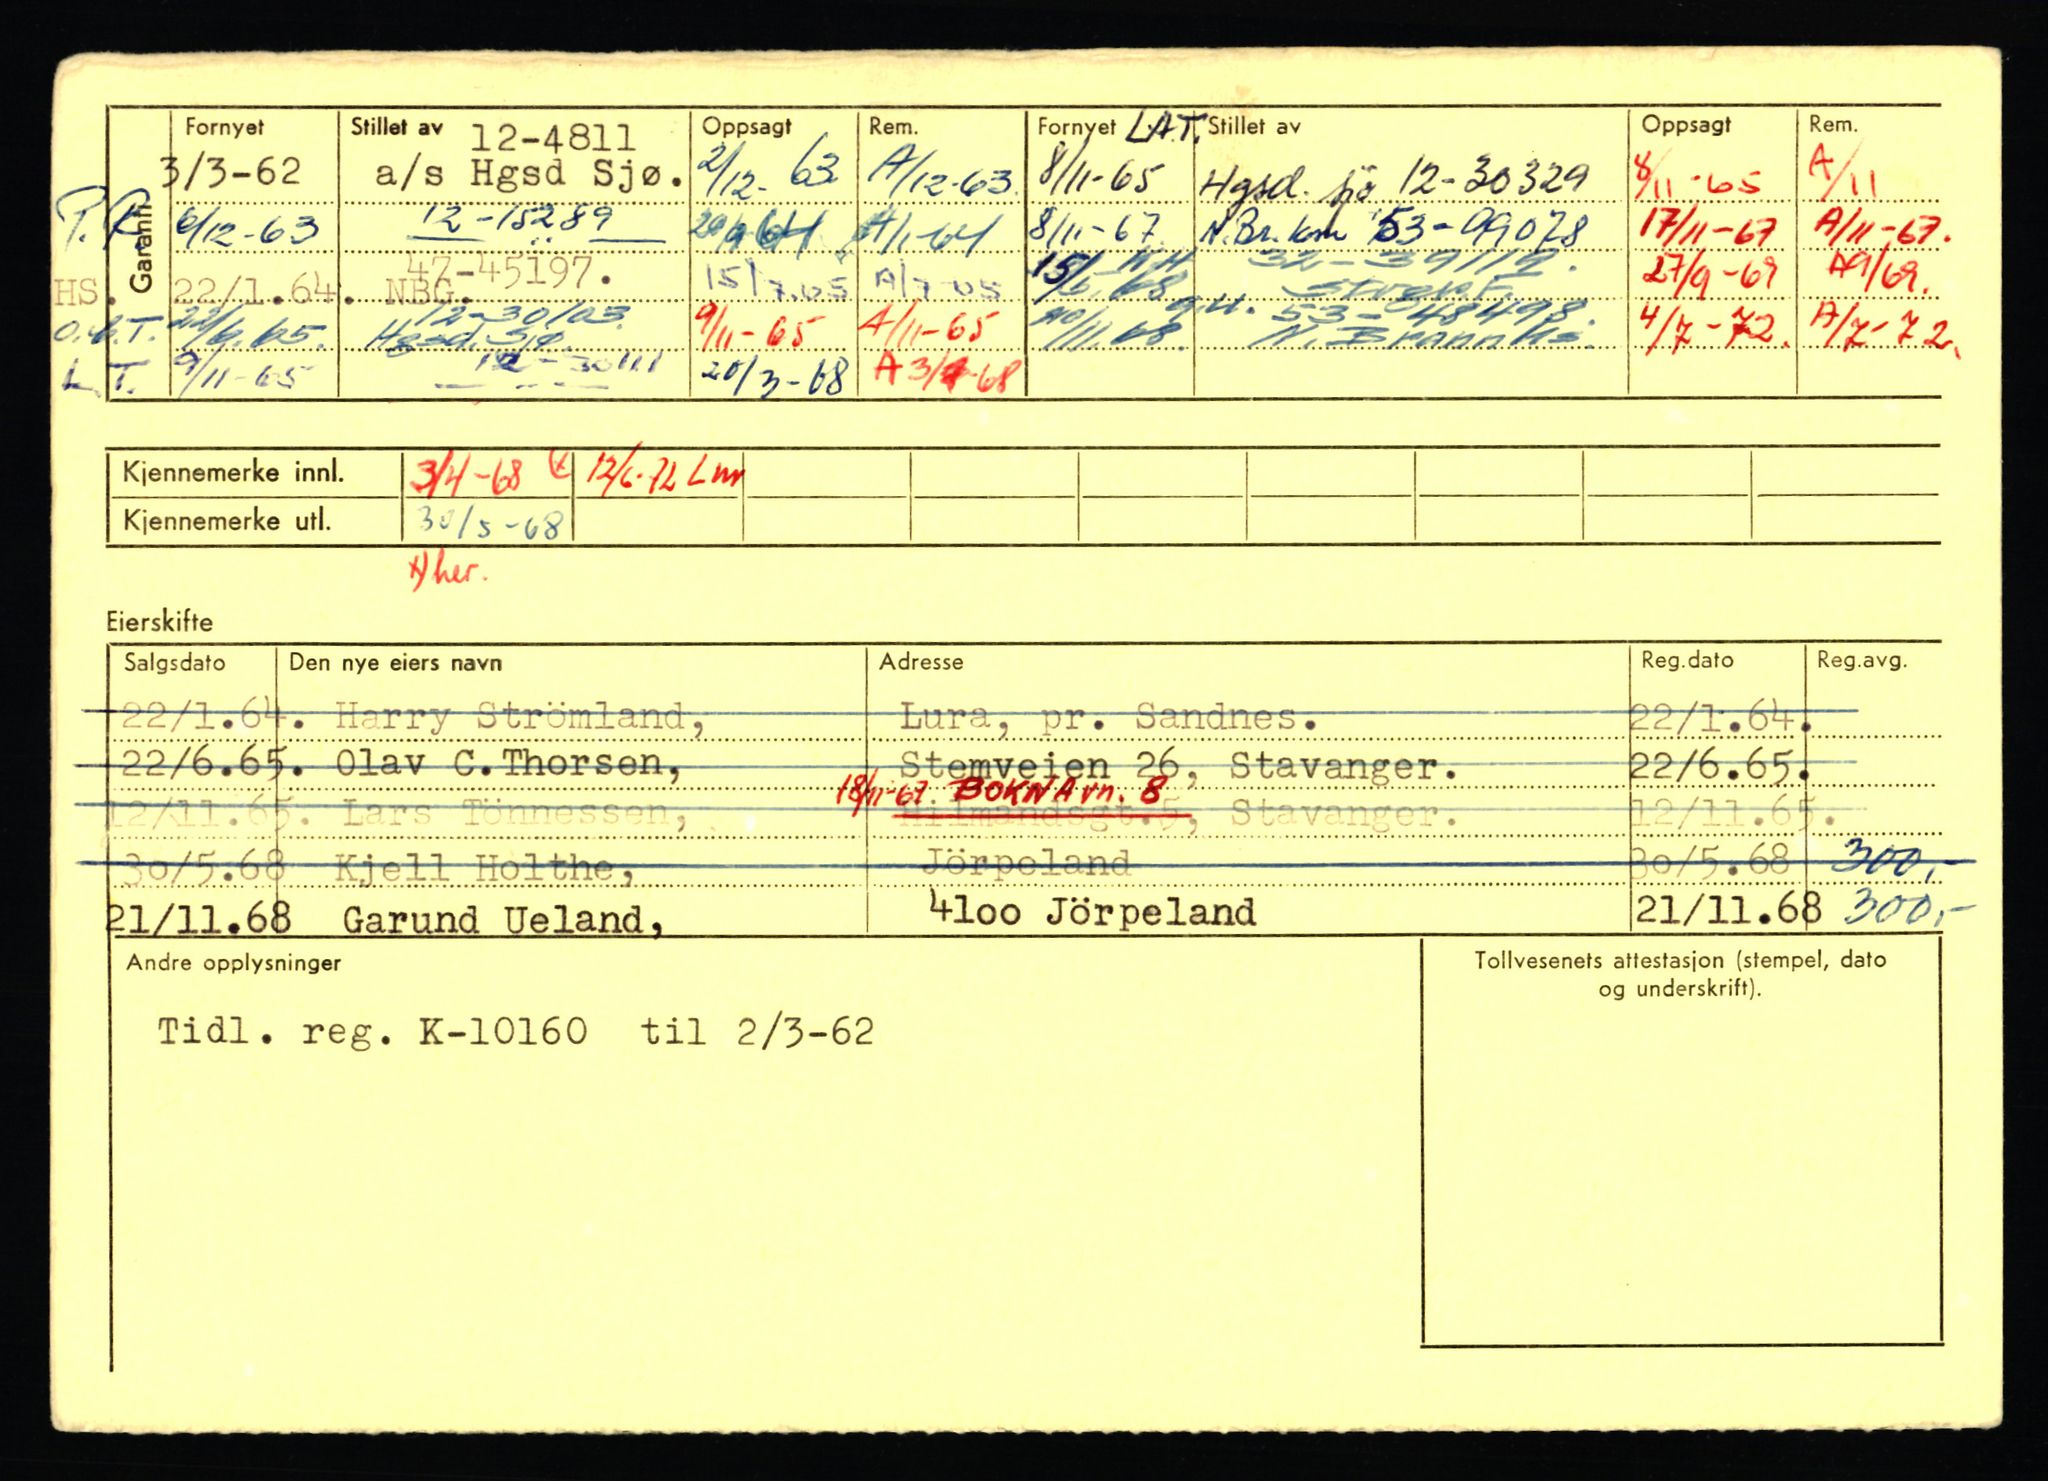 Garanti
Fornyet Stillet av Oppsagt Rem. Fornyet L.A.T. Stillet av Oppsagt Rem.
12-4811
3/3-62 a/s Hgsd Sjø. 2/12-63 A/12-63. 8/11-65 Hgsd. sjø 12-30329 8/11-65 A/11
P.R. 6/12-63 12-15289 A/1-64 8/11-67 N.Br. 53-99078 17/11-67 A/11-67.
47-45197.
HS. 22/1.64. NBG. 15/7.65 A/7-65 15/5.68 27/9-69 A9/69.
12-30103.
O.C.T. 22/6.65. Hgsd. Sjø. 9/11-65 A/11-65 53-48498. 4/7-72. A/7-72.
L.T. 9/11-65 20/3-68 A 3/4-68
Kjennemerke innl. 3/4-68 x 12/6-72 Lnr
Kjennemerke utl. 30/5-68
x) her.
Eierskifte
Salgsdato Den nye eiers navn Adresse Reg.dato Reg.avg.
22/1.64. Harry Strömland, Lura, pr. Sandnes. 22/1.64.
22/6.65. Olav C.Thorsen, Stemveien 26, Stavanger. 22/6.65.
18/11-67 BOKNAvn. 8
12/11.65. Lars Tönnessen, Hilmandsgt.5, Stavanger. 12/11.65.
30/5.68 Kjell Holthe, Jörpeland 30/5.68 300,-
21/11.68 Garund Ueland, 4100 Jörpeland 21/11.68 300,-
Andre opplysninger
Tollvesenets attestasjon (stempel, dato
og underskrift).
Tidl. reg. K-10160 til 2/3-62